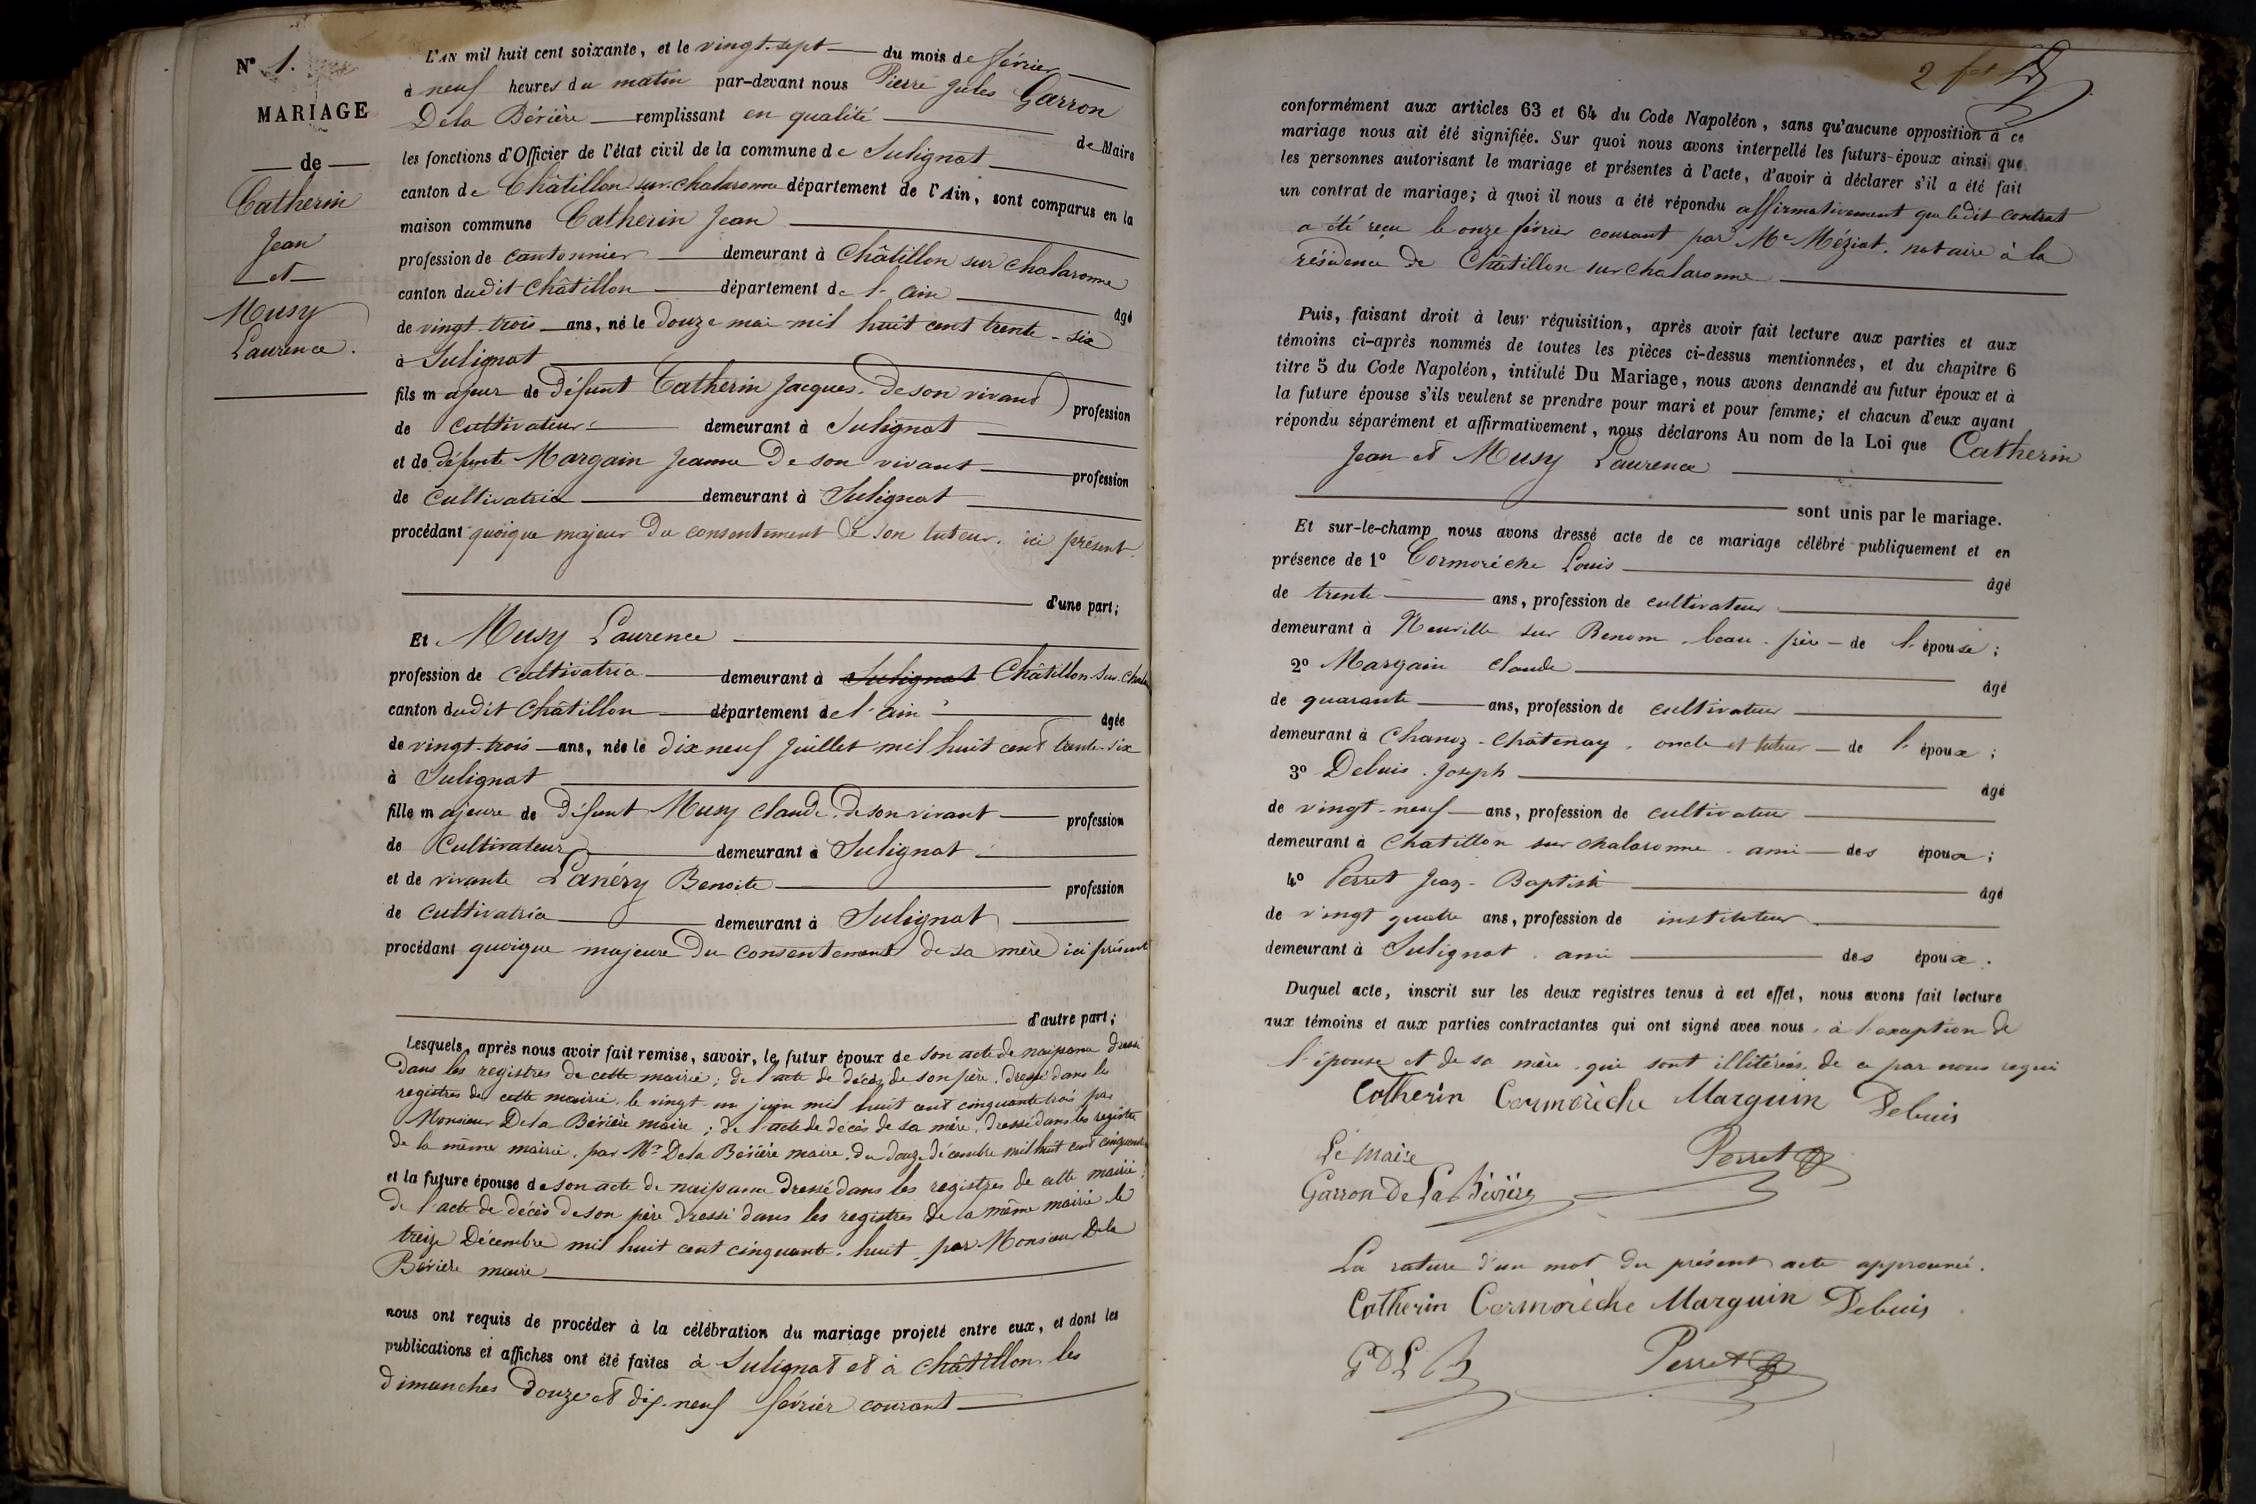 N° 1.
MARIAGE
de
Catherin
Jean
et
Musy
Laurence.
L'AN mil huit cent soixante, et le vingt-sept du mois de février
à neuf heures du matin par-devant nous Pierre Jules Garron
De la Bévière remplissant en qualité de Maire
les fonctions d'Officier de l'état civil de la commune de Sulignat
canton de Châtillon-sur-chalaronne département de l'Ain, sont comparus en la
maison commune Catherin Jean
profession de cantonnier demeurant à Châtillon sur chalaronne
canton dudit Châtillon département de l'ain âgé
de vingt-trois ans, né le douze mai mil huit cent trente-six
à Sulignat
fils majeur de défunt Catherin Jacques. De son vivant profession
de cultivateur demeurant à Sulignat
et de défunte Margain Jeanne De son vivant profession
de cultivatrice demeurant à Sulignat
procédant quoique majeur du consentement de son tuteur. ici présent.
d'une part;
Et Musy Laurence
profession de cultivatrice demeurant à Sulignat Châtillon-sur-Chala
canton dudit Châtillon département de l'ain âgée
de vingt-trois ans, née le dix neuf Juillet mil huit cent trente-six
à Sulignat
fille majeure de défunt Musy claude. de son vivant profession
de Cultivateur demeurant à Sulignat
et de vivante Lanéry Benoite profession
de cultivatrice demeurant à Sulignat
procédant quoique majeure du consentement de sa mère ici présente
d'autre part;
Lesquels, après nous avoir fait remise, savoir, le futur époux de son acte de naissance dressé
dans les registres de cette mairie; de l'acte de décès de son père. dressé dans les
registres de cette mairie. le vingt-un juin mil huit cent cinquante trois par
Monsieur De la Bévière maire; de l'acte de décès de sa mère, dressé dans les registres
de la même mairie. par Mr De la Bévière maire. du douze décembre mil huit cent cinquante
et la future épouse de son acte de naissance dressé dans les registres de cette mairie;
de l'acte de décès de son père dressé dans les registres de la même mairie le
treize Décembre mil huit cent cinquante-huit. par Monsieur De la
Bévière maire
nous ont requis de procéder à la célébration du mariage projeté entre eux, et dont les
publications et affiches ont été faites à Sulignat et à châtillon les
dimanches douze et dix-neuf février courant
2
conformément aux articles 63 et 64 du Code Napoléon, sans qu'aucune opposition à ce
mariage nous ait été signifiée. Sur quoi nous avons interpellé les futurs-époux ainsi que
les personnes autorisant le mariage et présentes à l'acte, d'avoir à déclarer s'il a été fait
un contrat de mariage; à quoi il nous a été répondu affirmativement que ledit contrat
a été reçu le onze février courant par Me Méziat. notaire à la
résidence de Châtillon sur chalaronne
Puis, faisant droit à leur réquisition, après avoir fait lecture aux parties et aux
témoins ci-après nommés de toutes les pièces ci-dessus mentionnées, et du chapitre 6
titre 5 du Code Napoléon, intitulé Du Mariage, nous avons demandé au futur époux et à
la future épouse s'ils veulent se prendre pour mari et pour femme; et chacun d'eux ayant
répondu séparément et affirmativement, nous déclarons Au nom de la Loi que Catherin
Jean et Musy Laurence
sont unis par le mariage.
Et sur-le-champ nous avons dressé acte de ce mariage célébré publiquement et en
présence de 1° Cormorèche Louis âgé
de trente ans, profession de cultivateur
demeurant à Neuville sur Renom. beau-père de l'épouse;
2° Margain claude âgé
de quarante ans, profession de cultivateur
demeurant à Chanoz-Châtenay. oncle et tuteur de l'époux;
3° Debuis. Joseph âgé
de vingt-neuf ans, profession de cultivateur
demeurant à Chatillon sur chalaronne. ami des époux;
4° Perret Jean-Baptiste âgé
de vingt quatre ans, profession de instituteur
demeurant à Sulignat. ami des époux.
Duquel acte, inscrit sur les deux registres tenus à cet effet, nous avons fait lecture
aux témoins et aux parties contractantes qui ont signé avec nous. à l'exception de
l'épouse et de sa mère. qui sont illitérées. de ce par nous requis
Catherin Cormorèche Marguin Debuis
Le Maire Perret
Garron De La Bévière
La rature d'un mot du présent acte approuvée.
Catherin Cormorèche Marguin Debuis
G D L B Perret